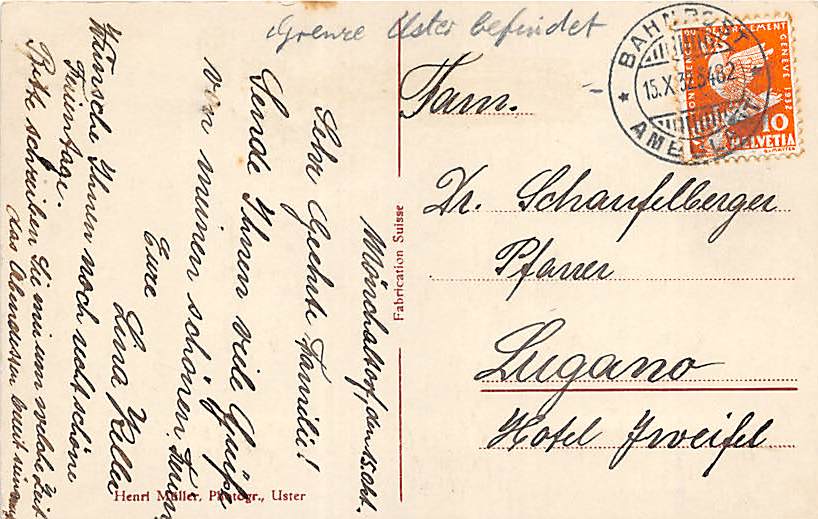 Grenze Uster befindet
Mönchaltorf, den 15. Okt.
Sehr Geehrte Familie!
Sende Ihnen viele Grüsse
von meinen schönen
Eure
Lina Keller
Wünsche Ihnen noch recht schöne
Ferientage.
Bitte schreiben Sie mir um welche Zeit
das Abendessen
Henri Müller, Photogr., Uster
Fabrication Suisse
Fam.
Dr. Schaufelberger
Pfarrer
Lugano
Hotel Zweifel
BAHNPOST
15.X.32. 3482
AMBULANT
GENÈVE 1932
10
HELVETIA